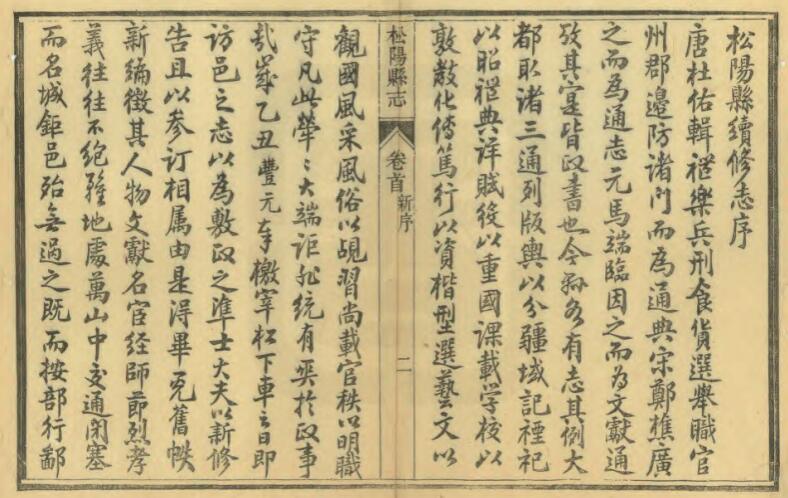 松陽縣續修志序
唐杜佑輯禮樂兵刑食貨選舉職官
州郡邊防諸門而為通典宋鄭樵廣
之而為通志元馬端臨因之而為文獻通
攷其寔皆政書也今縣各有志其例大
都取諸三通列版輿以分疆域記禋祀
以昭禮典详賦役以重國課載学校以
敦教化傳篤行以資楷型選藝文以
松陽縣志
卷首
新序
二
觀國風采風俗以覘習尚載官秩以明職
守凡此犖〻大端詎非統有於政事
哉嵗乙丑豐元奉檄宰松下車之日即
访邑之志以為敷政之準士大夫以新修
告且以参订相属由是得畢舊帙
新編徵其人物文獻名宦经師節烈孝
義往往不絕雖地處萬山中交通閉塞
而名城鉅邑殆無過之既而按部行鄙